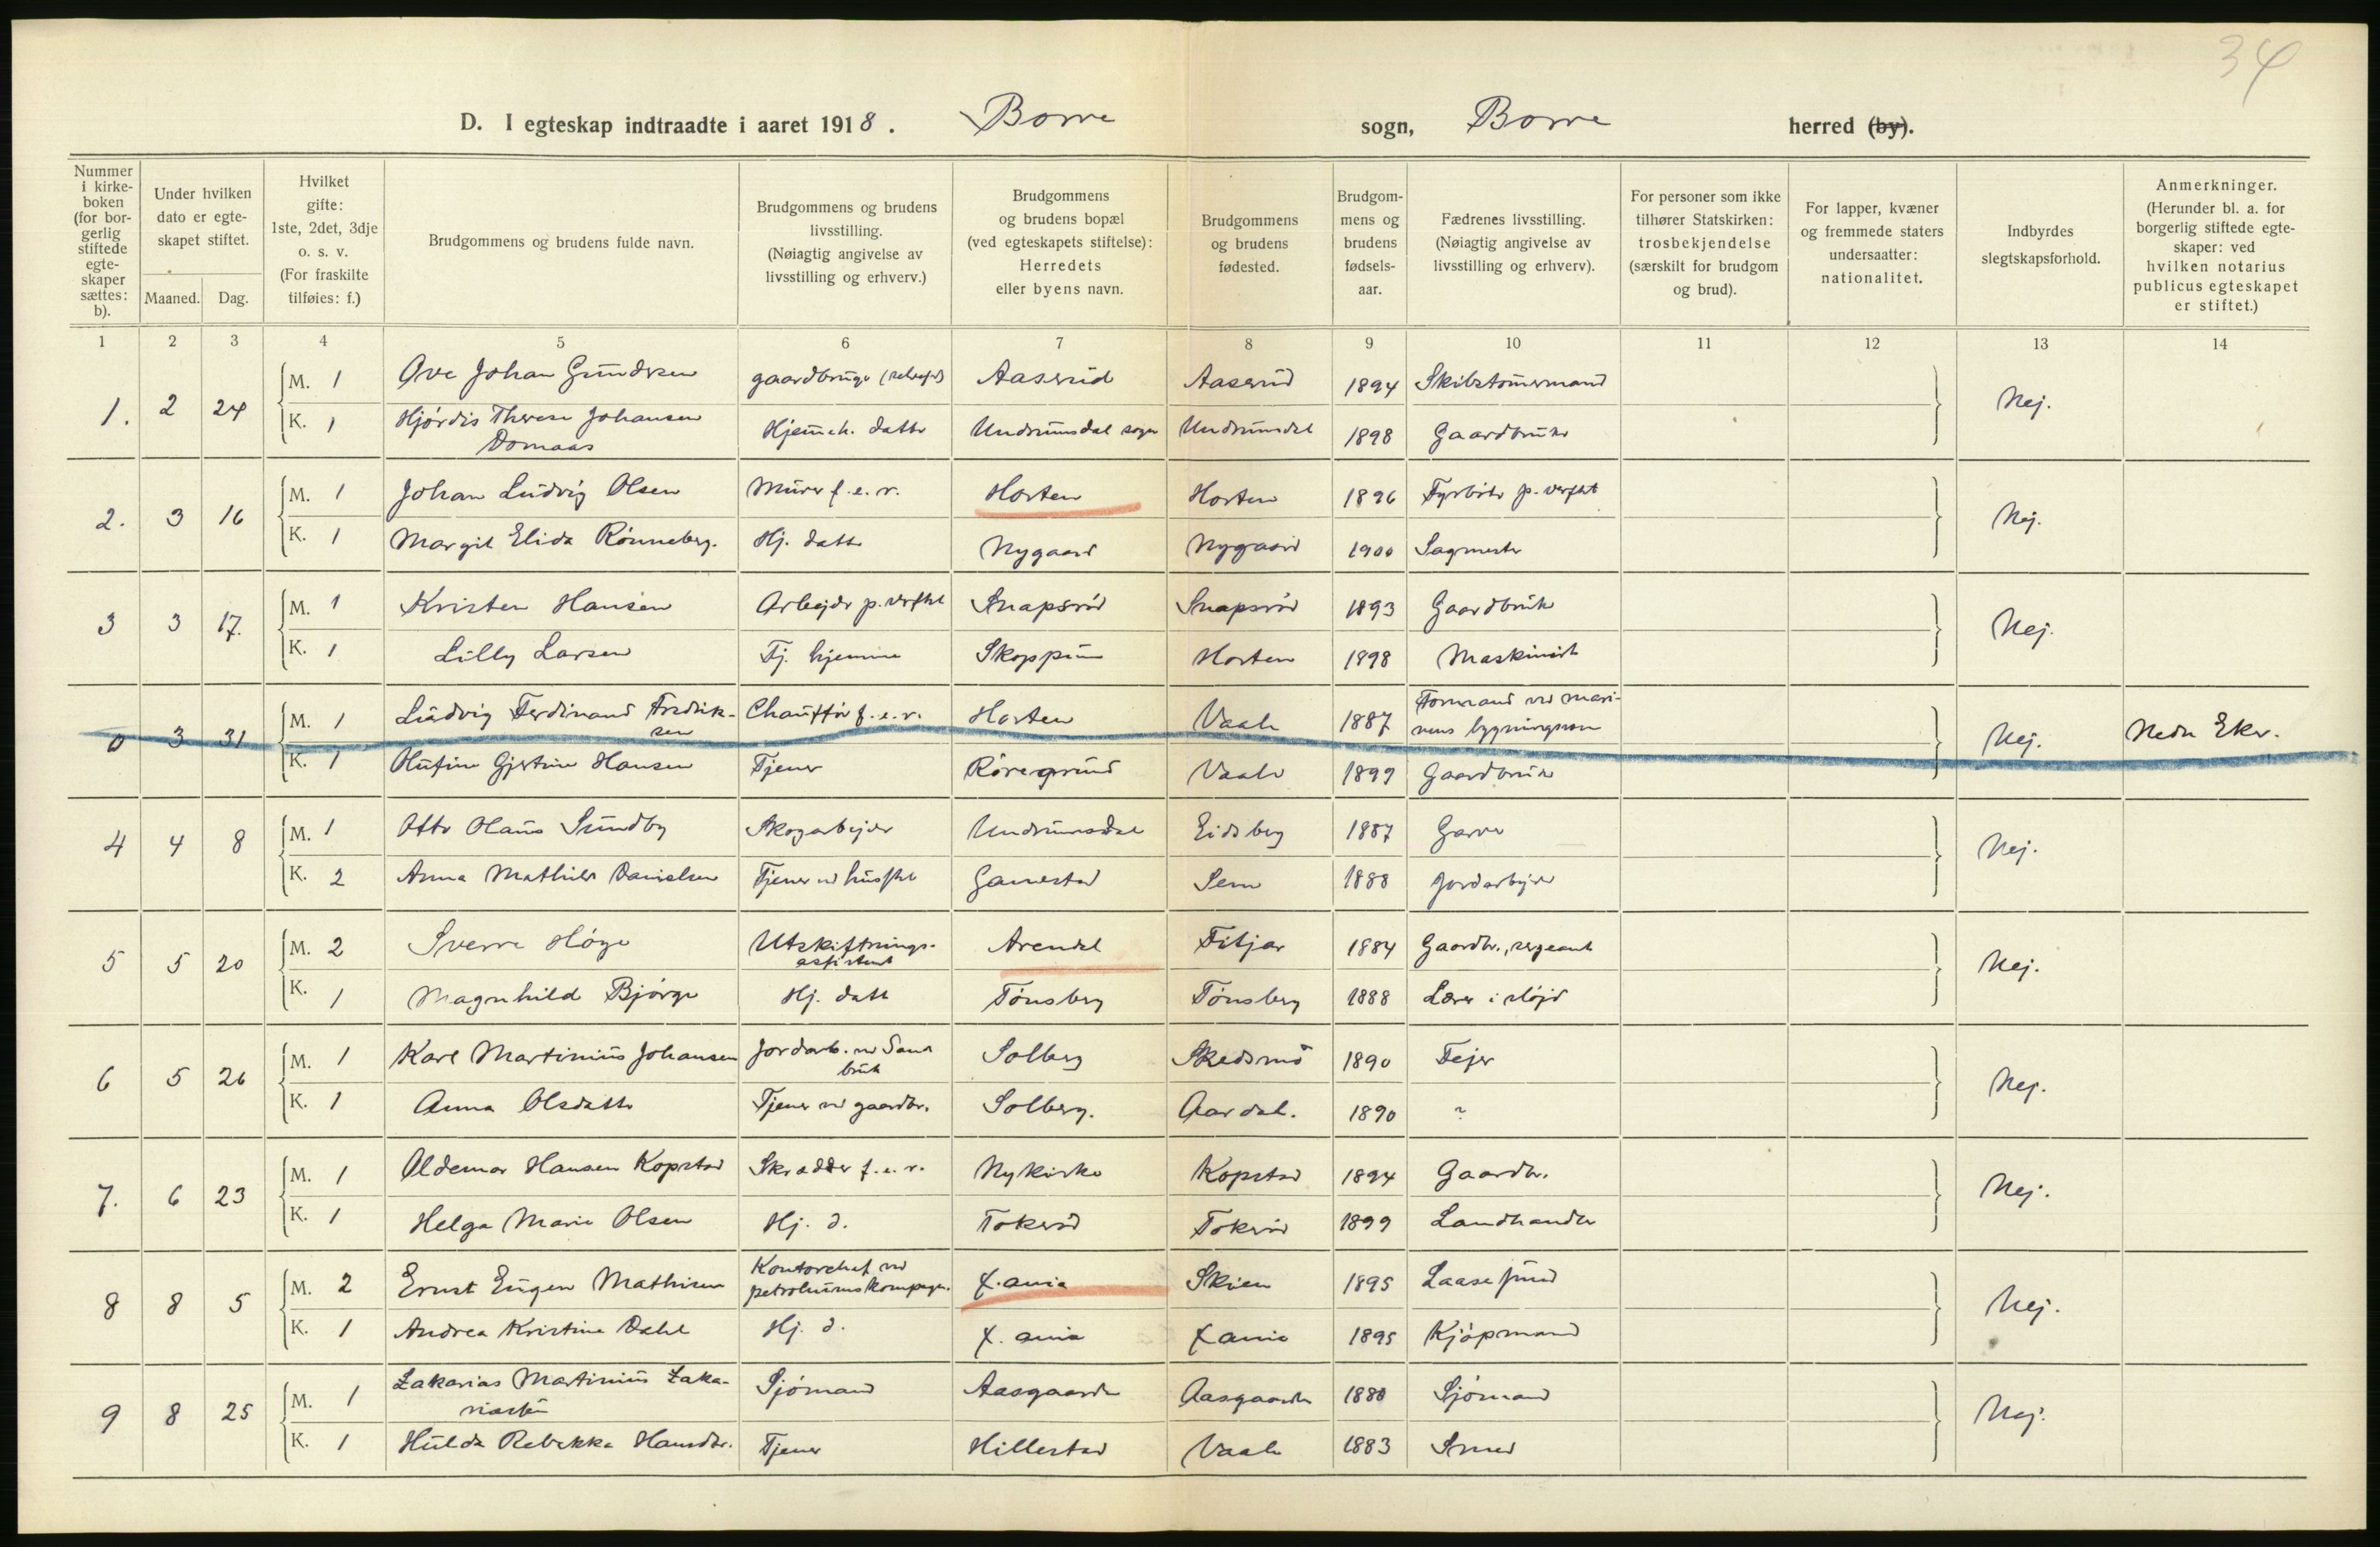 34
D. I egteskap indtraadte i aaret 1918. Borre sogn, Borre herred (by).
Nummer i kirke-boken (for bor-gerlig stiftede egte-skaper sættes: b).
Under hvilken dato er egte-skapet stiftet.
Maaned. Dag.
Hvilket gifte: 1ste, 2det, 3dje o. s. v. (For fraskilte tilføies: f.)
Brudgommens og brudens fulde navn.
Brudgommens og brudens livsstilling. (Nøiagtig angivelse av livsstilling og erhverv.)
Brudgommens og brudens bopæl (ved egteskapets stiftelse): Herredets eller byens navn.
Brudgommens og brudens fødested.
Brudgom-mens og brudens fødsels-aar.
Fædrenes livsstilling. (Nøiagtig angivelse av livsstilling og erhverv).
For personer som ikke tilhører Statskirken: trosbekjendelse (særskilt for brudgom og brud).
For lapper, kvæner og fremmede staters undersaatter: nationalitet.
Indbyrdes slegtskapsforhold.
Anmerkninger. (Herunder bl. a. for borgerlig stiftede egte-skaper: ved hvilken notarius publicus egteskapet er stiftet.)
1 2 3 4 5 6 7 8 9 10 11 12 13 14
1. 2 24 M. 1 Ove Johan Gundersen gaardbruger Aaserud Aaserud 1894 Skibstømermand Nej.
K. 1 Hjørdis Therese Johansen Domaas Hjemmeh. datter Undrumsdal sogn Undrumsdal 1898 Gaardbruker
2. 3 16 M. 1 Johan Ludvig Olsen Murer f. e. r. Horten Horten 1896 Fyrbøter p. verftet Nej.
K. 1 Margit Elida Rønneberg. Hj. datter Nygaard Nygaard 1900 Sagmester
3 3 17. M. 1 Kristen Hansen Arbejder p. verftet Snapsrød Snapsrød 1893 Gaardbruker Nej.
K. 1 Lilly Larsen Tj. hjemme Skoppum Horten 1898 Maskinist
0 3 31 M. 1 Ludvig Ferdinand Fredrik-sen Chauffør f. e. r. Horten Vaale 1887 Formand ved mari-nens Nej. Nedre Eker.
K. 1 Gjertine Hansen Tjener Røregrund Vaale 1899 Gaardbruker
4 4 8 M. 1 Otto Olaus Sundby Skogarbejder Undrumsdal Eidsberg 1887 Garver Nej.
K. 2 Anna Mathilde Danielsen Tjener v husstel Gannestad Sem 1888 Jordarbejder
5 5 20 M. 2 Sverre Høge Utskiftnings-assistent Arendal Fitjar 1884 Gaardbr., sergeant Nej.
K. 1 Magnhild Bjørge Hj. datt Tønsberg Tønsberg 1888 Lærer i sløjd
6 5 26 M. 1 Karl Martinius Johansen Jordarb. ved Solberg Skedsmo 1890 Fejer Nej.
K. 1 Anna Olsdatter Tjener ved gaardbr. Solberg. Aardal. 1890 ?
7. 6 23 M. 1 Aldemar Hansen Kopstad Skrædder f. e. r. Nykirke Kopstad 1894 Gaardbr. Nej.
K. 1 Helga Marie Olsen Hj. d. Tokerød Tokerød 1899 Landhandler
8 8 5 M. 2 Ernst Eugen Mathisen Kontorchef ved petroleumskompagni. X.ania Skien 1895 Nej.
K. 1 Andrea Kristine Dahl Hj. d. X. ania X ania 1895 Kjøpmand
9 8 25 M. 1 Zakarias Martinius Zaka-riassen Sjømand Aasgaarden Aasgaarden 1880 Sjømand Nej.
K. 1 Hulda Rebekka Hansdtr. Tjener Hillestad Vaale 1883 Smed